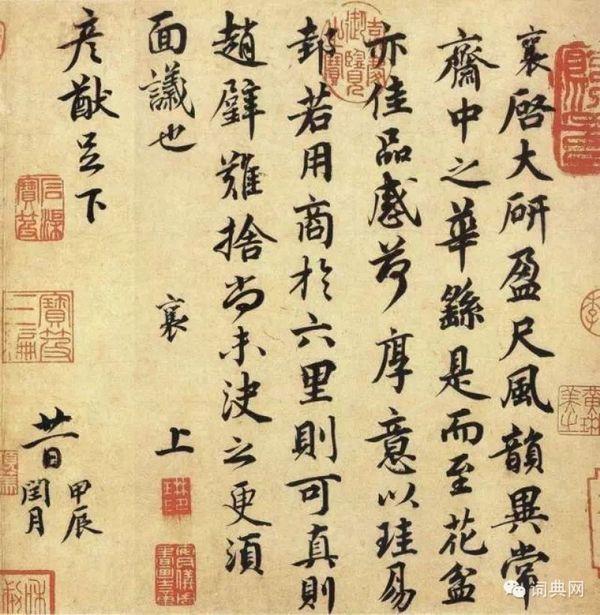 襄啓大研盈尺風韻異常
齋中之華繇是而至花盆
亦佳品感荷厚意以珪易
邽若用商於六里則可真則
趙璧難捨尚未決之更須
面議也
襄上
彥猷足下
廿一日
甲辰
閏月
词典网